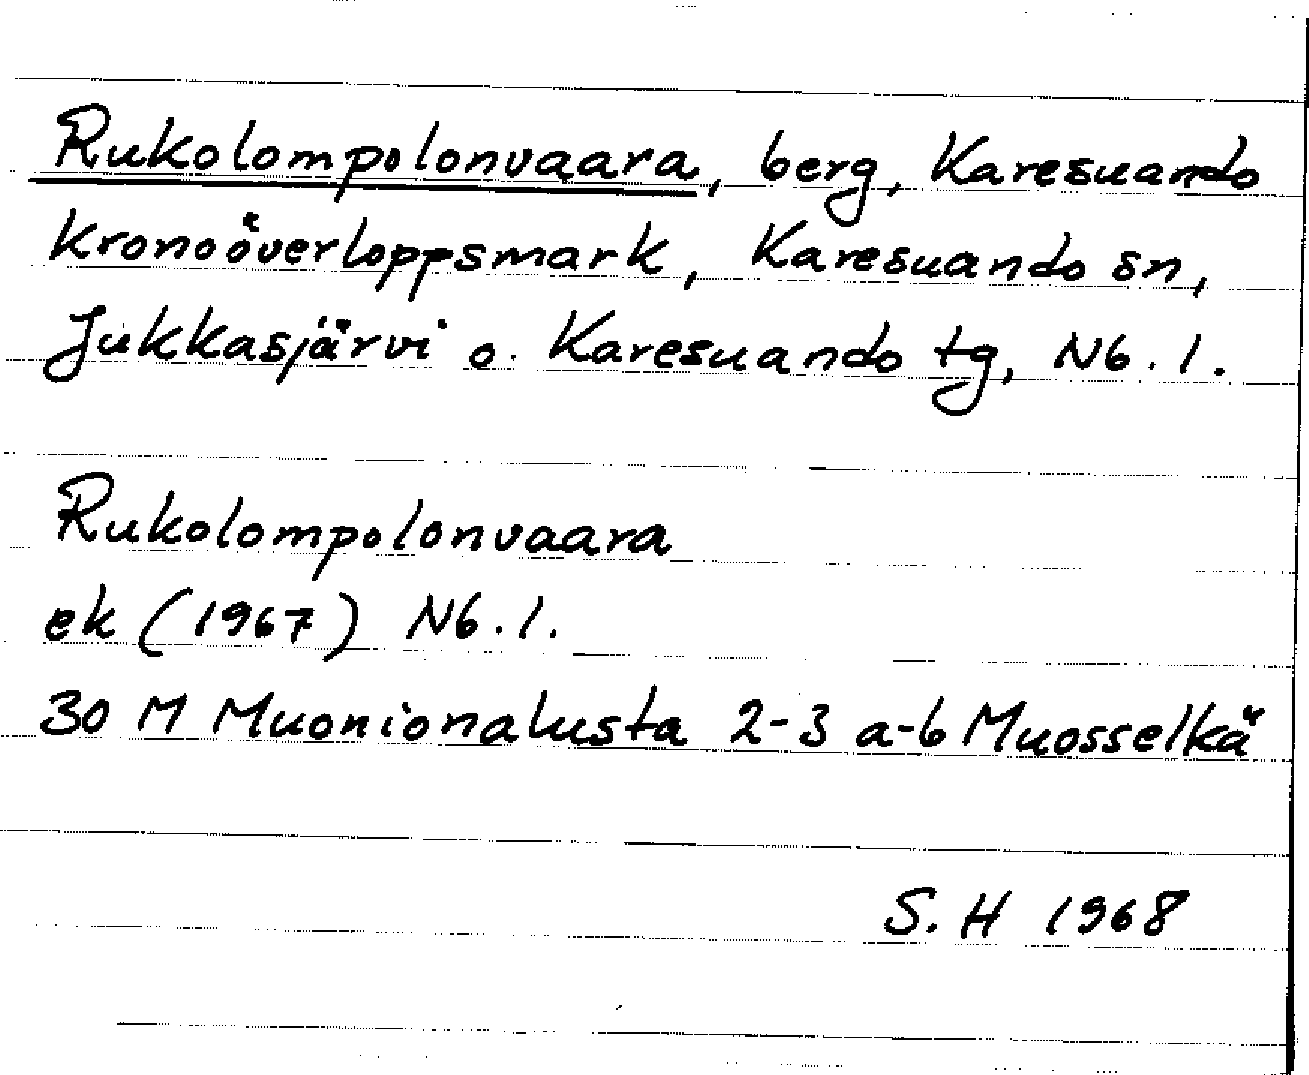 Rukolompolonvaara, berg, Karesuando
kronoöverloppsmark, Karesuando sn,
Jukkasjärvi o. Karesuando tg, Nb. l.
Rukolompolonvaara
ek (1967) Nb. l.
30 M Muonionalusta 2-3 a-b Muosselkä
S. H 1968